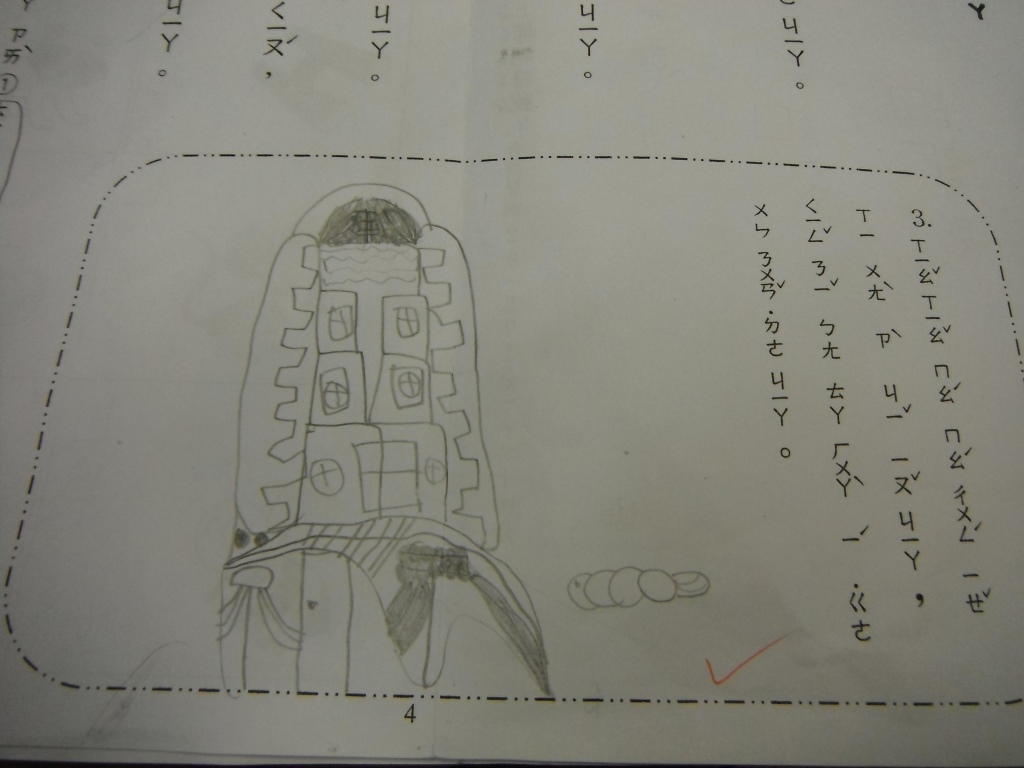 ㄚ
ㄐㄧㄚ。
ㄐㄧㄚ。
ㄐㄧㄚ。
ㄑㄧㄡˊ，
ㄐㄧㄚ。
3.ㄒㄧㄠˇ ㄒㄧㄠˇ ㄇㄠˊ ㄇㄠˊ ㄔㄨㄥˊ ㄧㄝˇ
ㄒㄧ ㄨㄤˋ ㄗˋ ㄐㄧˇ ㄧㄡˇ ㄐㄧㄚ，
ㄑㄧㄥˇ ㄋㄧˇ ㄅㄤ ㄊㄚ ㄏㄨㄚˋ ㄧˊ ˙ㄍㄜ
ㄨㄣ ㄋㄨㄢˇ ˙ㄉㄜ ㄐㄧㄚ。
4